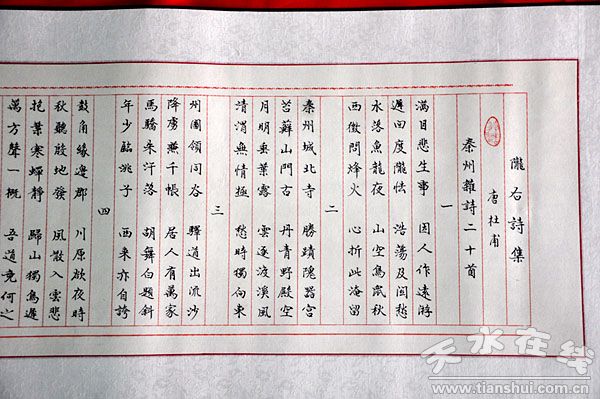 隴右詩集
唐 杜甫
秦州雜詩二十首
一
滿目悲生事 因人作遠游
遲回度隴怯 浩蕩及関愁
水落魚龍夜 山空鳥鼠秋
西徵問烽火 心折此淹留
二
秦州城北寺 勝蹟隗囂宮
苔蘚山門古 丹青野殿空
月明垂葉露 雲逐渡溪風
清渭無情極 愁時獨向東
三
州圖領同谷 驛道出流沙
降虜兼千帳 居人有萬家
馬驕朱汗落 胡舞白題斜
年少臨洮子 西來亦自誇
四
鼓角緣邊郡 川原欲夜時
秋聽殷地發 風散入雲悲
抱葉寒蟬靜 歸山獨鳥遲
萬方聲一概 吾道竟何之
天水在线
www.tianshui.com.cn